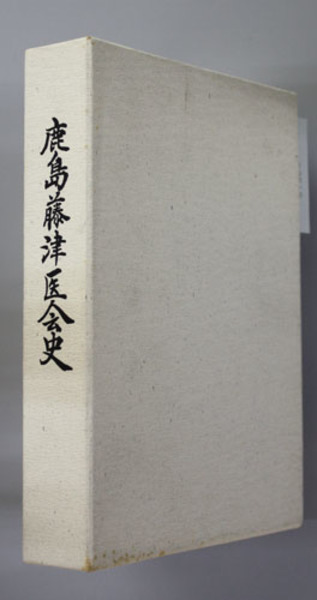 鹿島藤津医会史